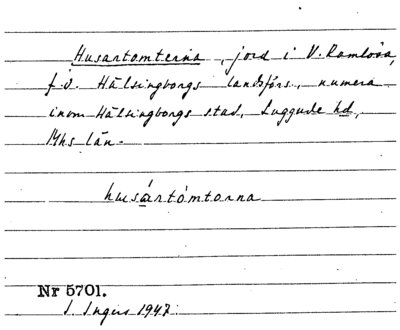 Husartomterna, jord i V. Ramlösa,
f.d. Hälsingborgs landsförs., numera
inom Hälsingborgs stad, Luggude hd,
Mhs län.
husártòmtorna
Nr 5701.
I. Ingers 1947.